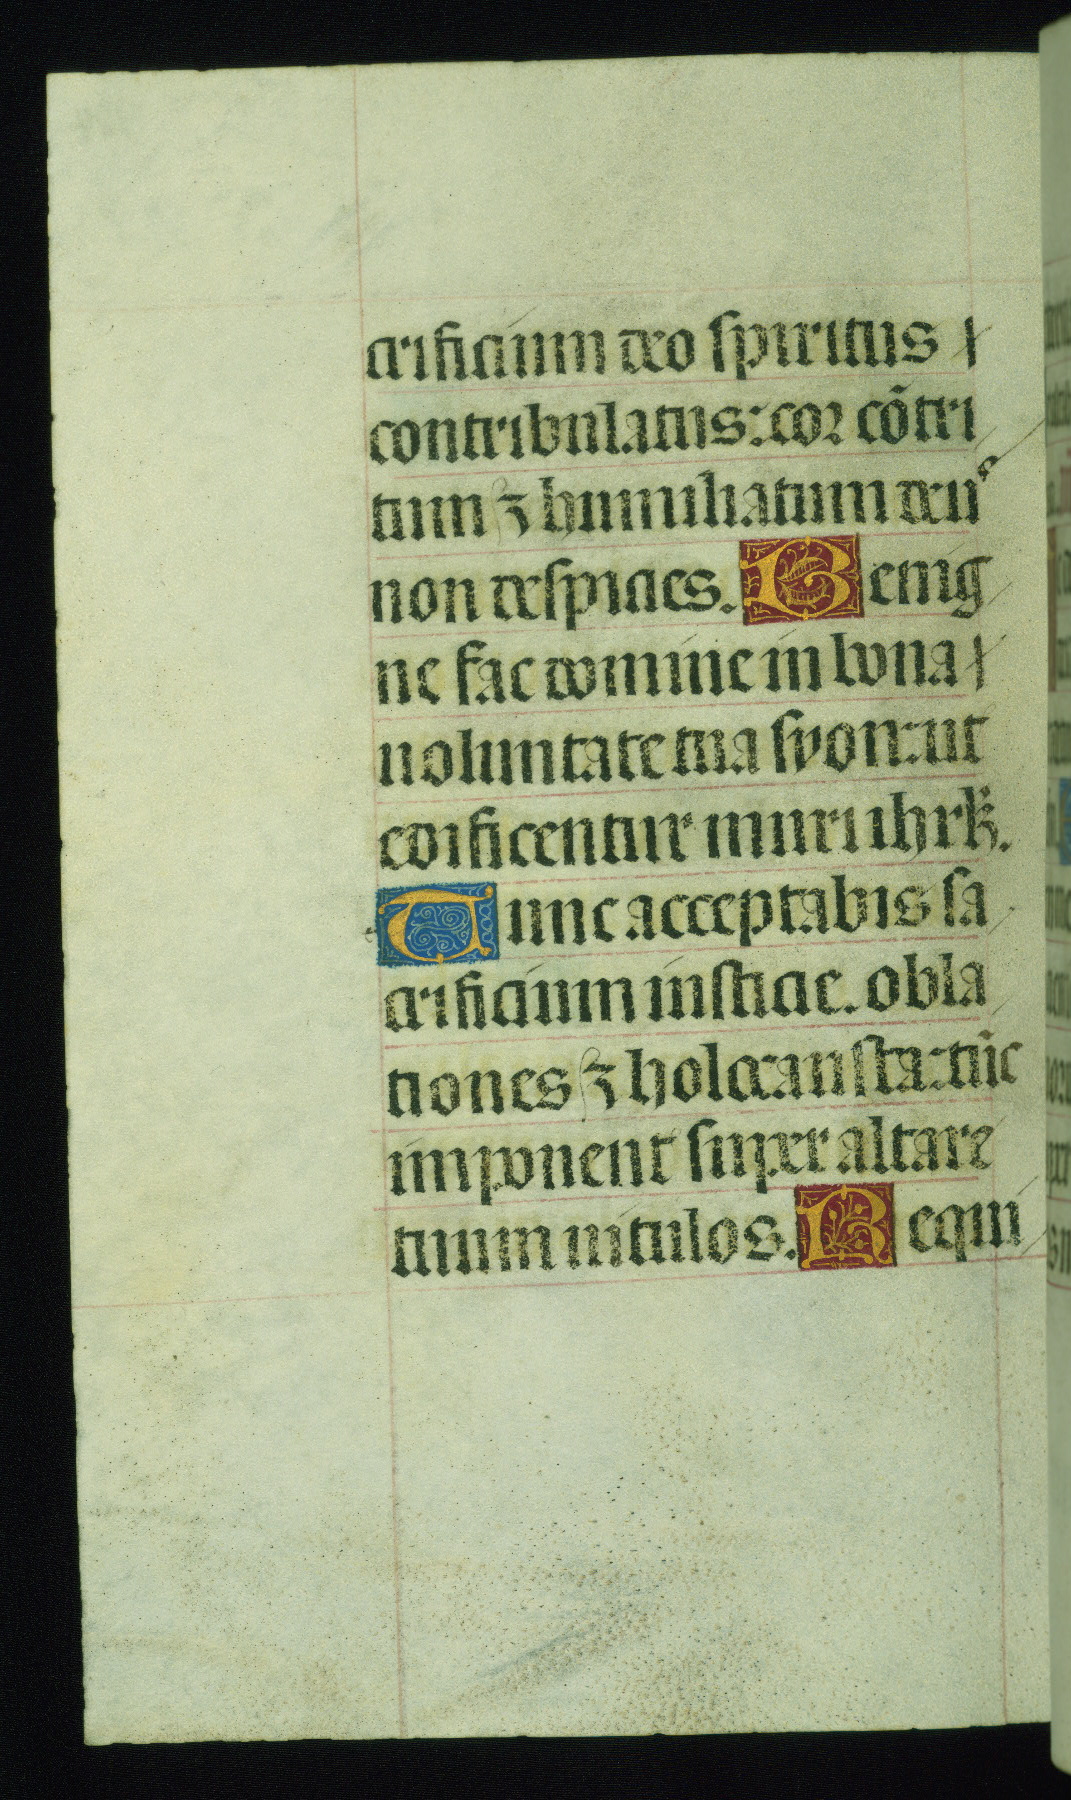 crificium deo spiritus
contribulatus: cor cõtri
tum ⁊ humiliatum deus
non despicies. Benig
ne fac domine in bona
uoluntate tua syon: ut
edificentur muri ihrłm.
Tunc acceptabis sa
crificium iusticie. obla
tiones ⁊ holocausta: tūc
imponent super altare
tuum uitulos. Requi